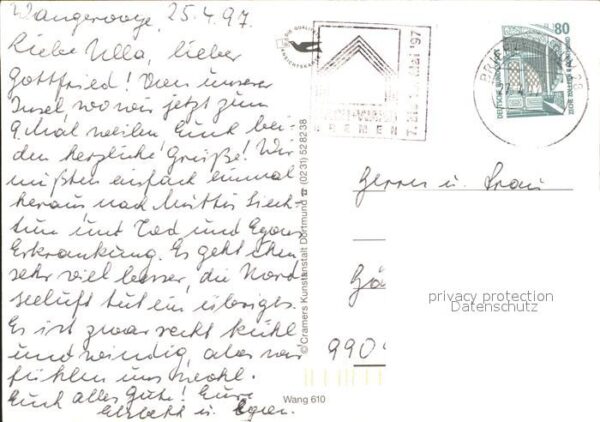 Wangerooge, 25.4.97.
Liebe Ulla, lieber
Gottfried! Von unserer
Insel, wo wir jetzt zum
9. Mal weilen Euch bei-
den herzliche Grüße! Wir
mußten einfach einmal
heraus nach Muttis Siech-
tum und Tod und Egons
Erkrankung. Es geht ihm
sehr viel besser, die Nord-
seeluft tut ein übriges.
Es ist zwar recht kühl
und windig, aber wir
fühlen uns wohl.
Euch alles Gute! Eure
u. Egon.
© Cramers Kunstanstalt Dortmund ☎ (0231) 528238
Wang 610
BREMEN
80
DEUTSCHE BUNDESPOST
Herrn u. Frau
Gä
990
privacy protection
Datenschutz